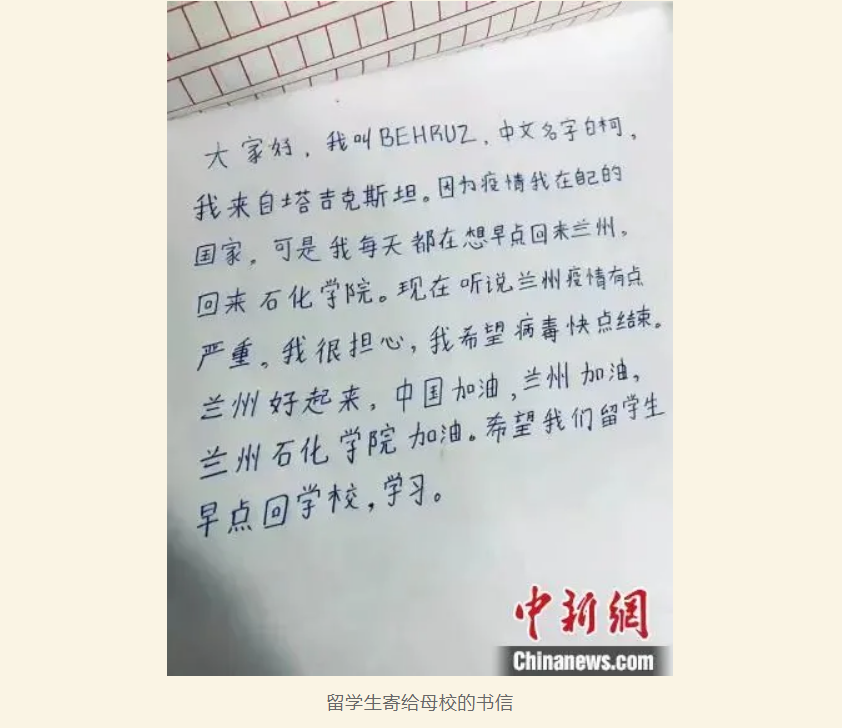 大家好，我叫BEHRUZ，中文名字白柯，
我来自塔吉克斯坦。因为疫情我在自己的
国家，可是我每天都在想早点回来兰州，
回来石化学院。现在听说兰州疫情有点
严重，我很担心，我希望病毒快点结束。
兰州好起来，中国加油，兰州加油，
兰州石化学院加油。希望我们留学生
早点回学校，学习。
中新網
Chinanews.com
留学生寄给母校的书信